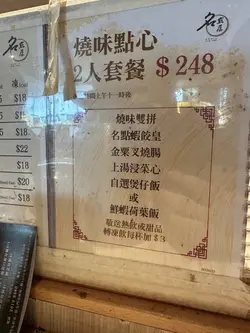 名
燒味點心
2人套餐 $248
時間上午十一時後
燒味雙拼
名點蝦餃皇
金粟叉燒腸
上湯浸菜心
自選煲仔飯
或
鮮蝦荷葉飯
敬送熱飲或甜品
轉凍飲每杯加 $3
名
凍
$18
$18
$22
$20
$20
$18